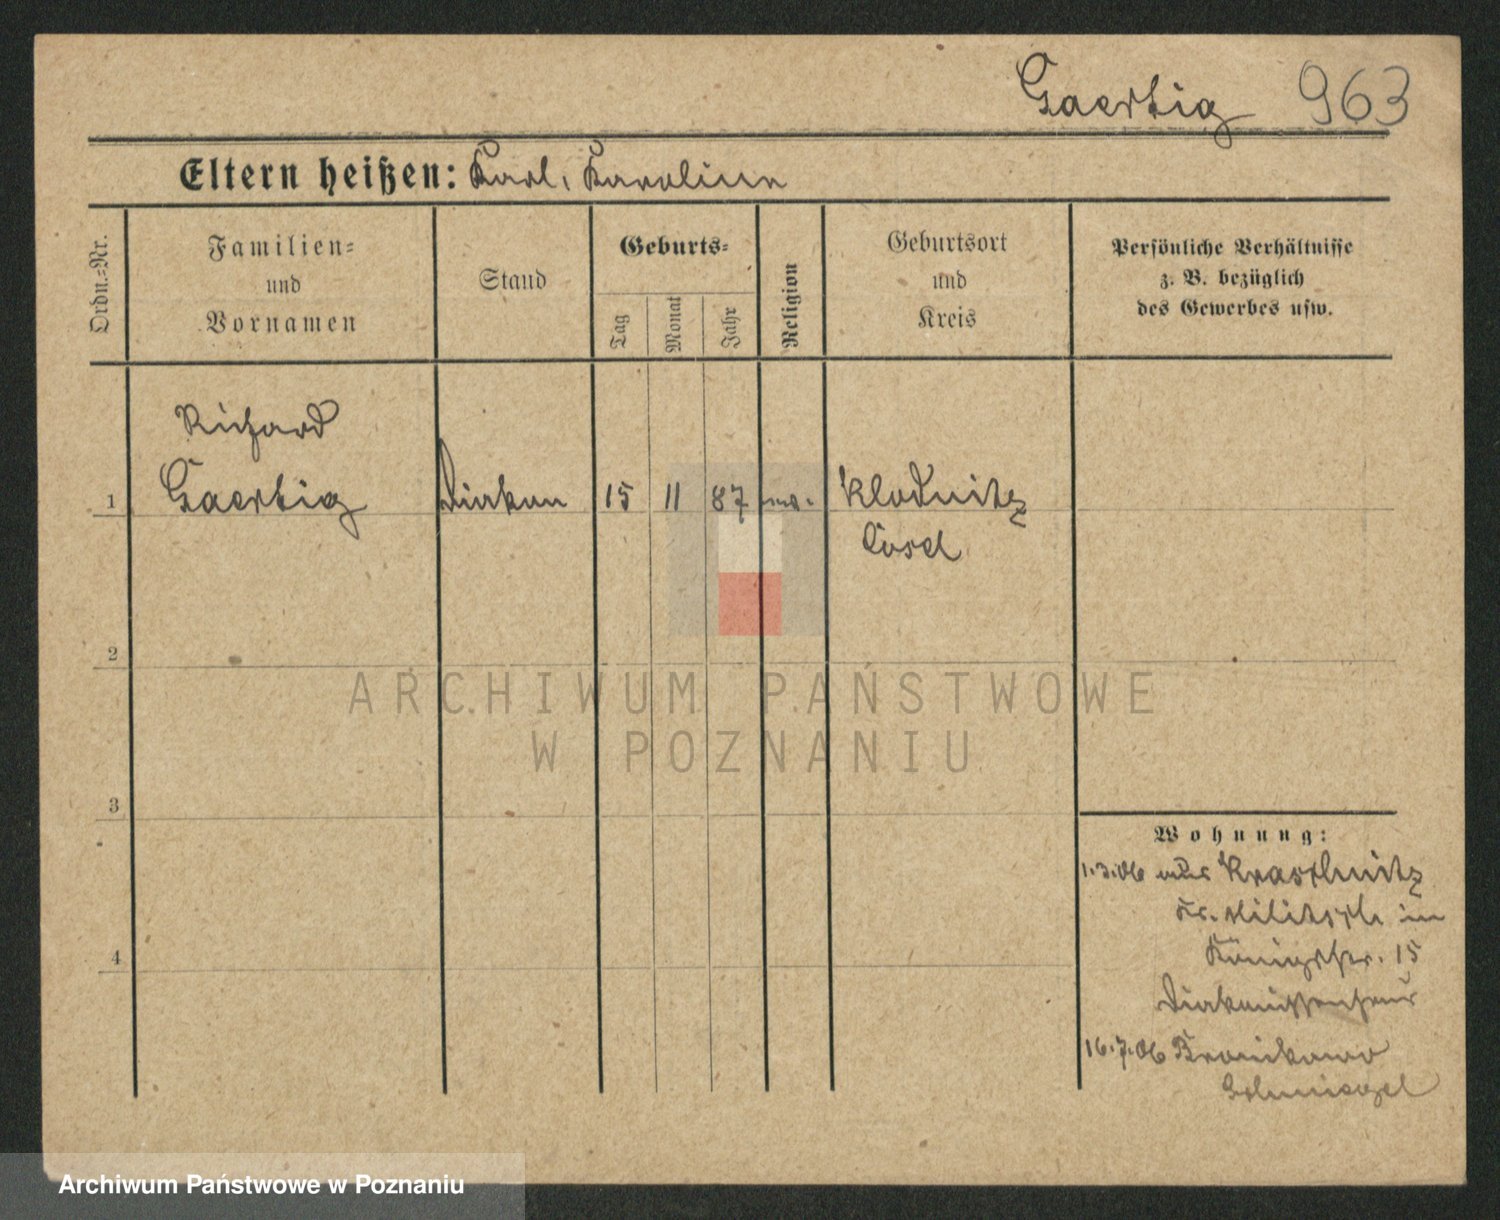 Gaertig 963
Eltern heißen: Karl, Karoline
Ordn.=Nr.
Familien=
und
Vornamen
Stand
Geburts=
Tag
Monat
Jahr
Religion
Geburtsort
und
Kreis
Persönliche Verhältnisse
z. B. bezüglich
des Gewerbes usw.
Richard
1 Gaertig Diakon 15 11 87 Klodnitz
Cosel
2
3
4
Wohnung:
1.3.06 aus Kraschnitz
Kr. Militsch in
Königstr. 15
Diakonissenhaus
16.7.06 Bronikowo
Schmiegel
ARCHIWUM PAŃSTWOWE
W POZNANIU
Archiwum Państwowe w Poznaniu